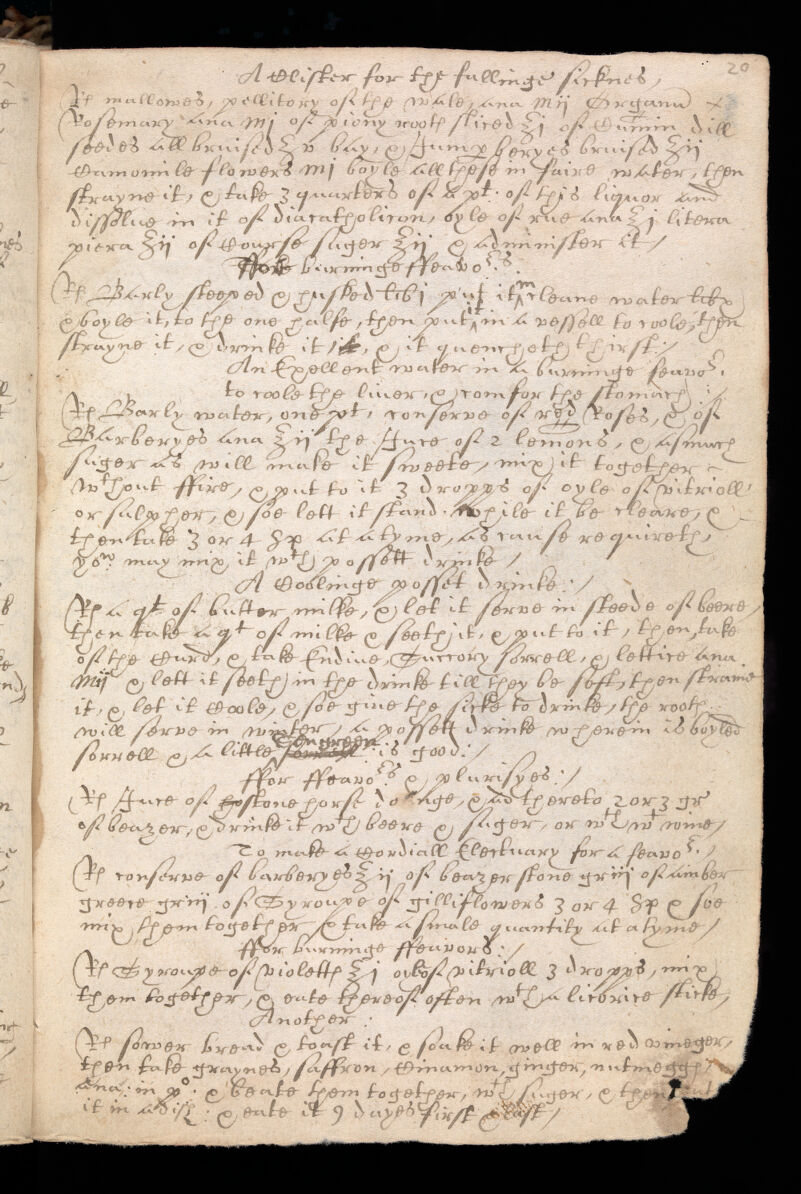 20
A Clister for the fallinge sicknes,
Rx mallowes, pellitory of the wale, ana Mij Organū
Rosemary ana Mj of piony rooth sliced ℥j of Cumin, dill
seedes all bruised ℥v bay, & Junip beryes bruised ℥ij
Camomile flowers Mj boyle all these in faire water, then
strayne it, & take 3 quarters of a pt: of this liquor and
dissolue in it of diacatholicon, oyle of rue ana ℥j litera
piera ℥ij of Course suger ℥ij & administer it /
ffor burninge ffeavors:
Rx Barly steeped & husked libj put it in cleane water
& boyle it, to the one halfe, then put it in a vessell to coole, then
strayne it, & drinke it, & it quencheth thirst: /
An Expellent water in a burninge feavor:
to coole the liuer, & comfor the stomach: /
Rx Barly water, one pt, conserve of red Roses, & of
Barberyes ana ℥ij the Juce of 2 lemons, & asmuch
suger as will make it sweete, mix it together
wthout ffire, & put to it 3 dropps of oyle of vitrioll
or sulpher, & soe lett it stand while it be cleare, &
then take 3 or 4 Sp at a tyme, as cause requireth,
you may mix it wth possett drinke /
A Coolinge posset drinke: /
Rx a qt of butter milke, & let it serve in steede of beere,
then take a qt of milke & seeth it, & put to it, then take
of the Curd, & take Endiue, Succory sorrell, & lettice ana
Mij & lett it seeth in the drinke till they be soft, then straine
it, & let it Coole, & soe giue the sicke to drinke, the rooth
will serve in winter, a possett drinke wherein is boyled
sorrell & a little Sengreen is good: /
ffor ffeavors & plurisyes: /
Rx Juce of stone horse donge, & ad thereto 2 or 3 gr
of beazer, & drinke it wth beere & suger, or wth wt wine /
To make a Cordiall Electuary for a feavor: /
Rx conserve of barberyes ℥ij of beazer stone griij of amber
greece griij of Syroupe of gilliflowers 3 or 4 Sp & soe
mix them together, & take a smale quantity at a tyme /
ffor burninge ffeavors: /
Rx Syroupe of violetts ℥j oyle of vitrioll 3 dropps, mix
them together, & eate thereof often wth a licorice sticke,
Another:
Rx sower bread & toast it, & soake it well in red vineger,
then take graynes, saffron, Cinamon, ginger, nutmeggs,
ana: in po: & beate them together, wth suger, & then put
it in a dish: & eate it 9 dayes first & last /